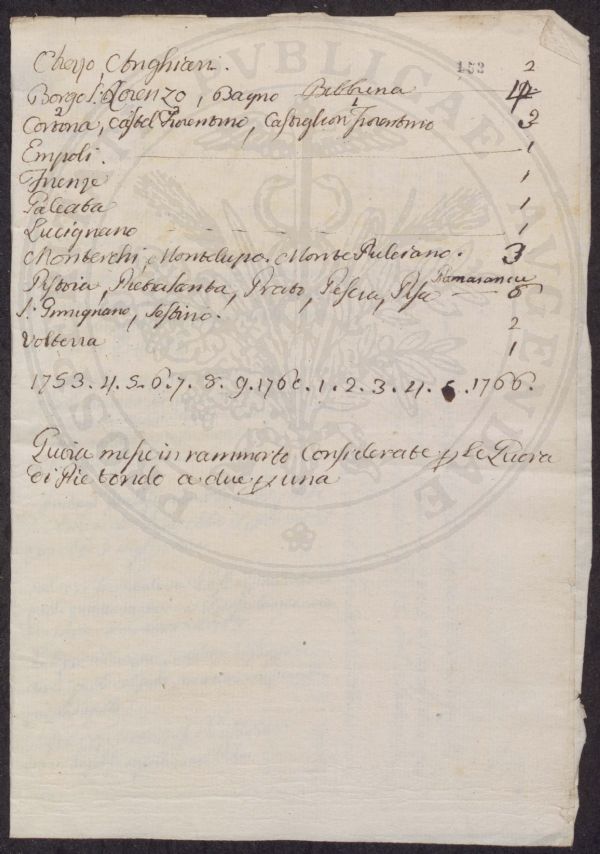 153
Arezo, Anghiari. 2
Borgo S. Lorenzo, Bagno Bibbiena
Cortona, Castel Fiorentino, Castiglion Fiorentino 3
Empoli. 1
Firenze 1
Galeata 1
Lucignano 1
Monterchi, Montelupo. Monte Pulciano. 3
Pistoia, Pietrasanta, Prato, Pescia, Pisa Pomarance 6
S. Gimignano, Sestino. 2
Volterra 1
1753. 4. 5. 6. 7. 8. 9. 1760. 1. 2. 3. 4. 5. 1766.
messe in considerate le
di a due una
PISCIS PUBLICAE AUGENDAE